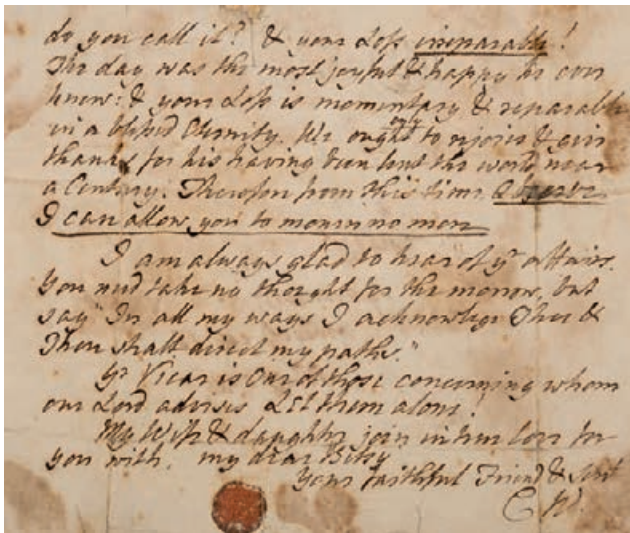 do you call it? & your Loss irreparable!
The day was the most joyful & happy he ever
knew: & your Loss is momentary & reparable
in a blessed Eternity. We ought only to rejoice & give
thanks for his having been lent the world near
a Century. Therefore from this time Observe
I can allow you to mourn no more
I am always glad to hear of yr affairs.
You need take no thought for the morrow, but
say "In all my ways I acknowlege Thee &
Thou shalt direct my paths."
Yr Vicar is One of those concerning whom
our Lord advises Let them alone!
My Wife & daughtr join in true love for
you with, my dear Betsy
Your faithful Friend & Servt
C W.